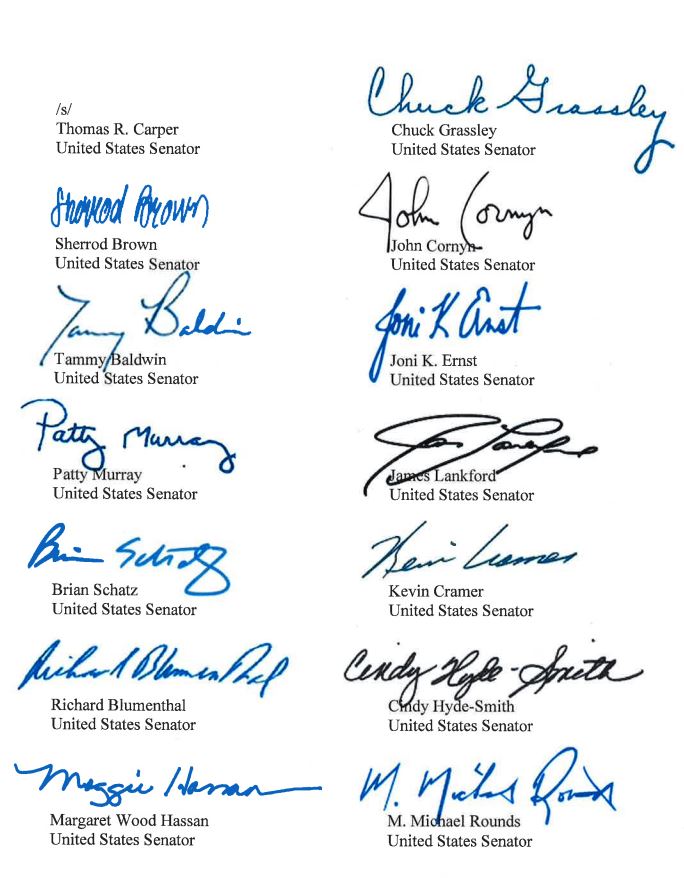 /s/
Thomas R. Carper
United States Senator
Chuck Grassley
Chuck Grassley
United States Senator
Sherrod Brown
Sherrod Brown
United States Senator
John Cornyn
John Cornyn
United States Senator
Tammy Baldwin
Tammy Baldwin
United States Senator
Joni K Ernst
Joni K. Ernst
United States Senator
Patty Murray
Patty Murray
United States Senator
James Lankford
United States Senator
Brian Schatz
Brian Schatz
United States Senator
Kevin Cramer
Kevin Cramer
United States Senator
Richard Blumenthal
Richard Blumenthal
United States Senator
Cindy Hyde-Smith
Cindy Hyde-Smith
United States Senator
Maggie Hassan
Margaret Wood Hassan
United States Senator
M. Michael Rounds
M. Michael Rounds
United States Senator